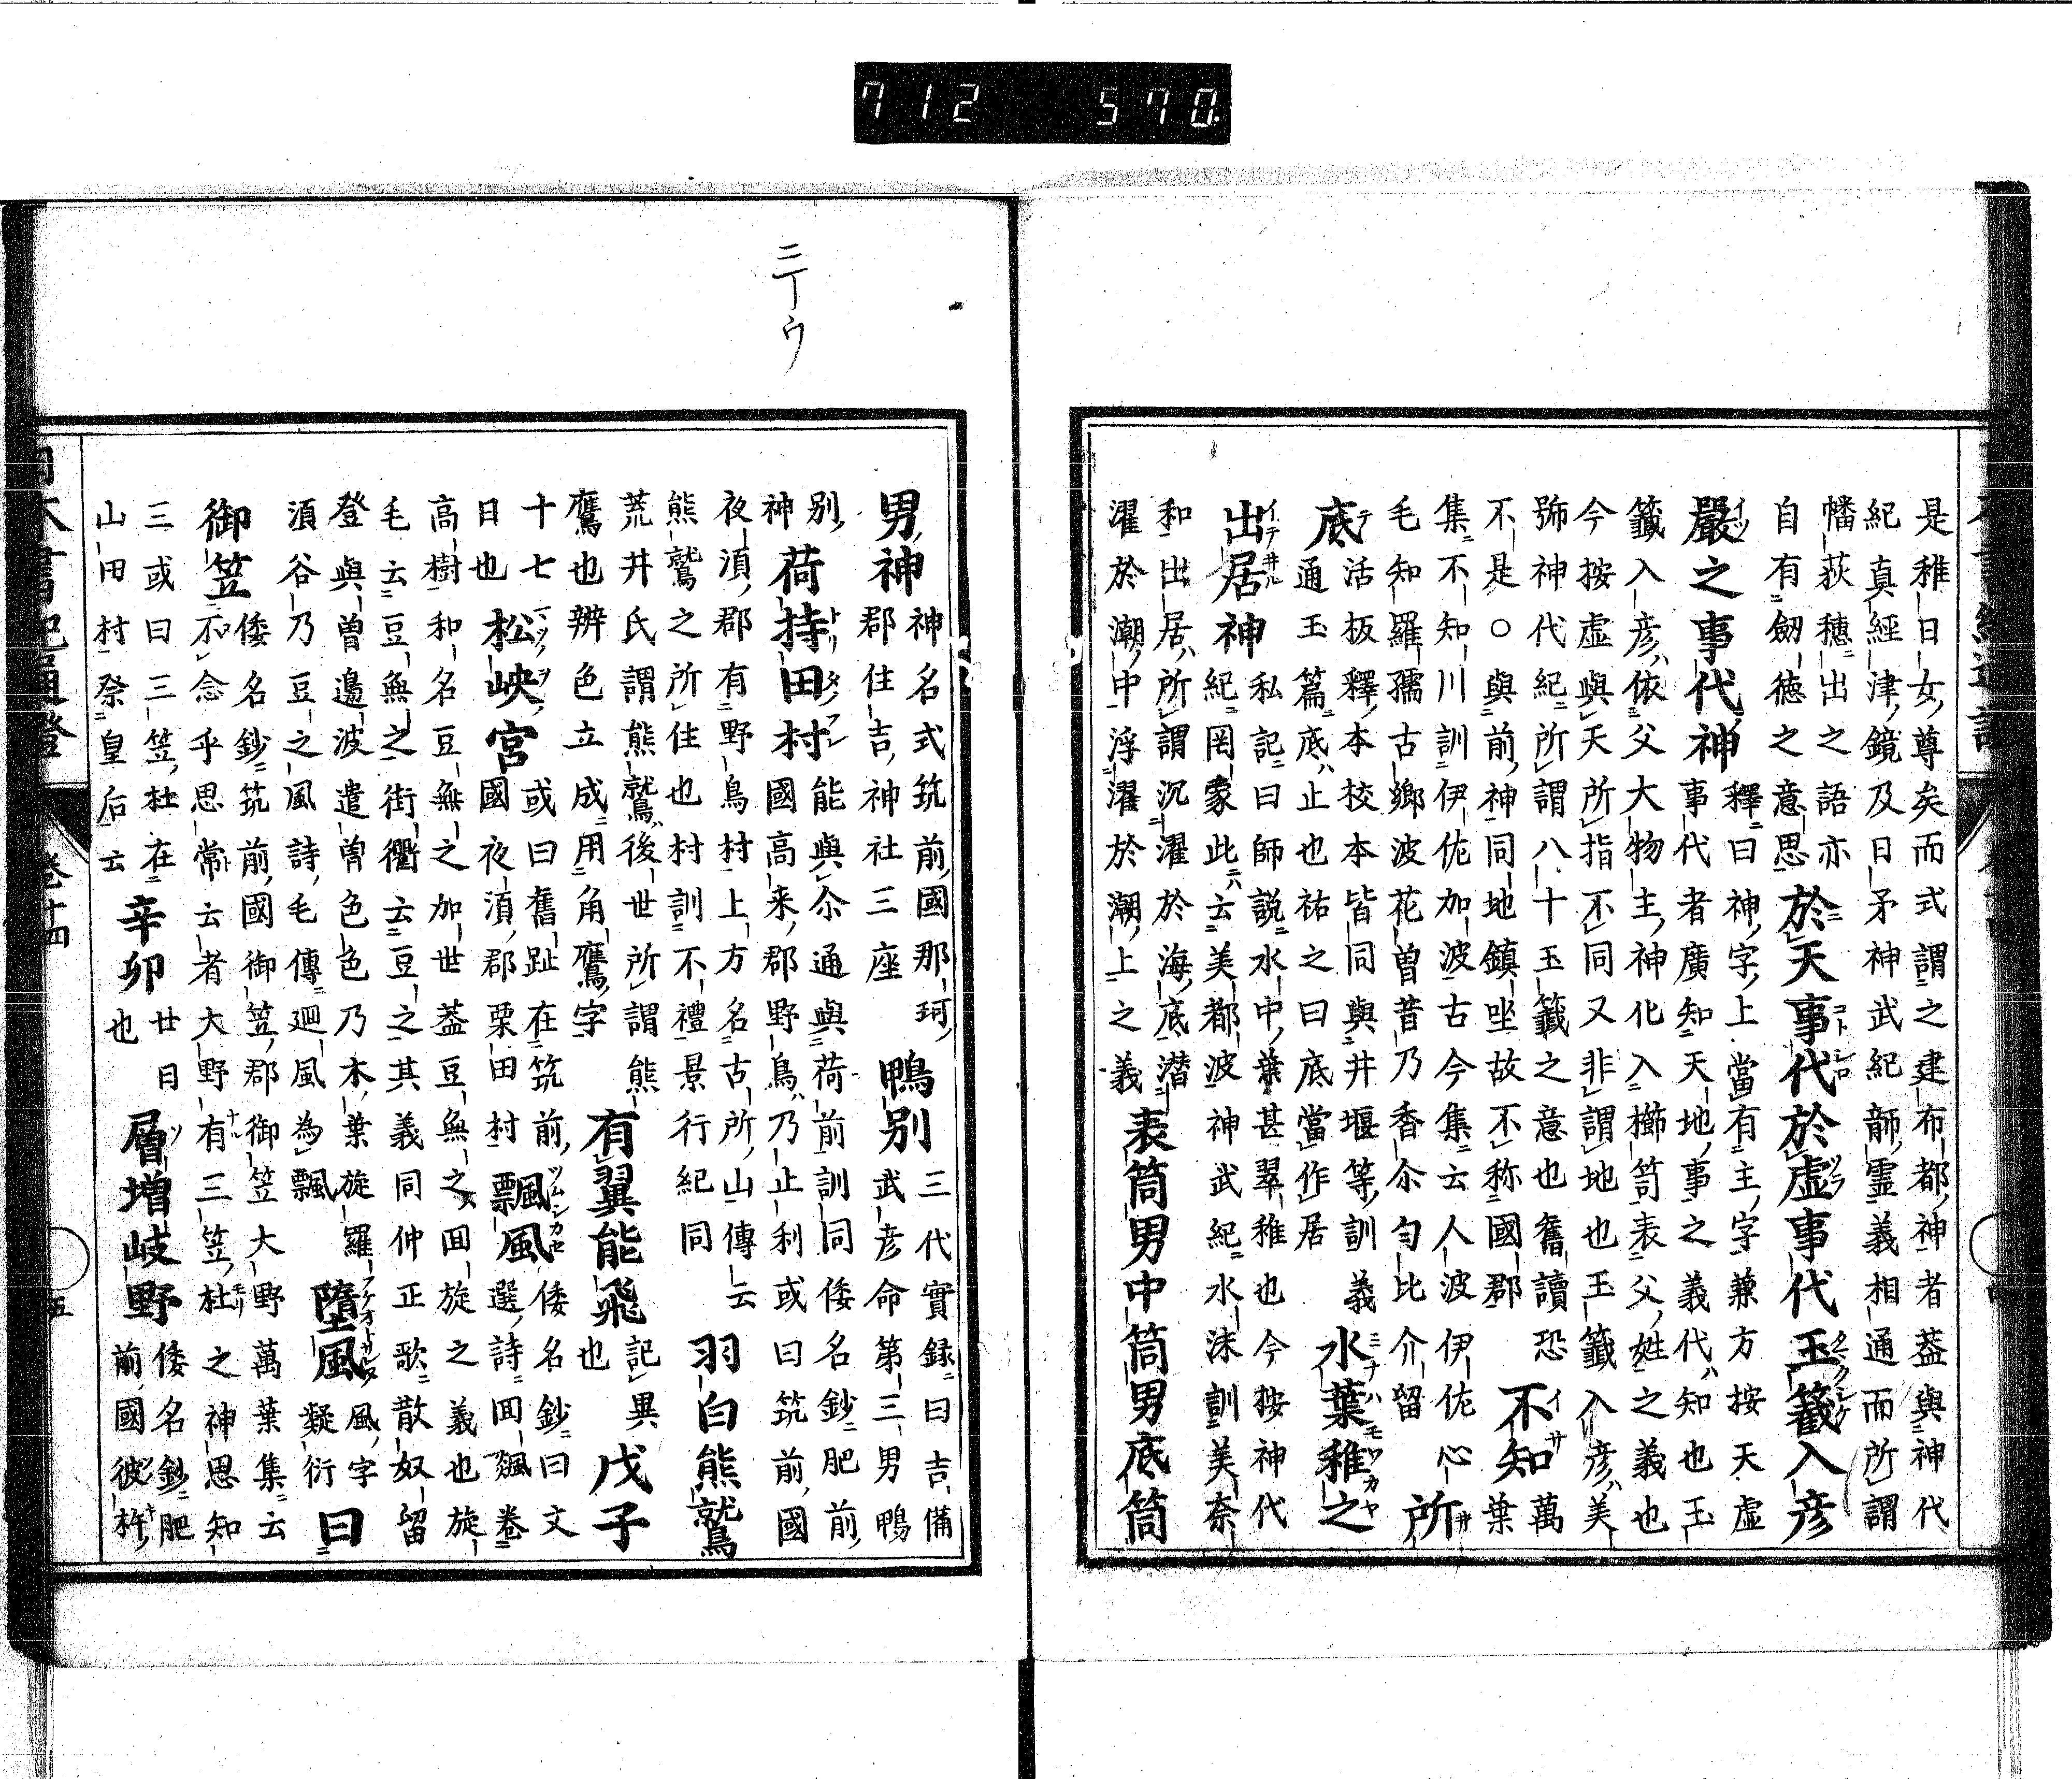 712 570
是稚日女尊矣而式謂之建布都神者蓋與神代
紀真經津鏡及日矛神武紀韴霊義相通而所謂
幡荻穗出之語亦
自有劔徳之意思
於天事代於虚事代玉籤入彦
嚴之事代神
釋曰神字上當有主字兼方按天虚
事代者廣知天地事之義代ハ知也玉
籤入彦ハ依父大物主神化入櫛笥表父姓之義也
今按虚與天所指不同又非謂地也玉籤入彦ハ美
號神代紀所謂八十玉籤之意也舊讀恐
不是○與前神同地鎮坐故不称國郡
不知
萬葉
集不知川訓伊佐加波古今集云人波伊佐心
毛知羅孺古郷波花曽昔乃香尒匂比介留
所
底
活板釋本校本皆同與井堰等訓義
通玉篇底ハ止也祐之曰底當作居
水葉稚之
出居神
私記曰師説水中葉甚翠稚也今按神代
紀罔象此云美都波神武紀水沫訓美奈
和出居ハ所謂沉濯於海底潜
濯於潮中浮濯於潮上之義
表筒男中筒男底筒
三丁ウ
男神
神名式筑前國那珂
郡住吉神社三座
鴨別
三代實録曰吉備
武彦命第三男鴨
別
神
荷持田村
能與尒通與荷前訓同倭名鈔肥前
國高来郡野鳥ハ乃止利或曰筑前國
夜須郡有野鳥村上方名古所山傳云
熊鷲之所住也村訓不禮景行紀同
羽白熊鷲
荒井氏謂熊鷲ハ後世所謂熊
鷹也辨色立成用角鷹字
有翼能飛
記異
也
戊子
十七
日也
松峡宮
或曰舊趾在筑前
國夜須郡栗田村
飄風
倭名鈔曰文
選詩回飊卷
高樹和名豆無之加世蓋豆無之回旋之義也旋
毛云豆無之街衢云豆之其義同仲正歌散奴留
登與曽邊波遣曽色色乃木葉旋羅
須谷乃豆之風詩毛傳廻風為飄
墮風
風字
凝衍
曰
御笠
倭名鈔筑前國御笠郡御笠大野萬葉集云
不念乎思常云者大野有三笠杜之神思知
三或曰三笠杜在
山田村祭皇后云
辛卯
廿日
也
層増岐野
倭名鈔肥
前國彼杵
卷十四
五